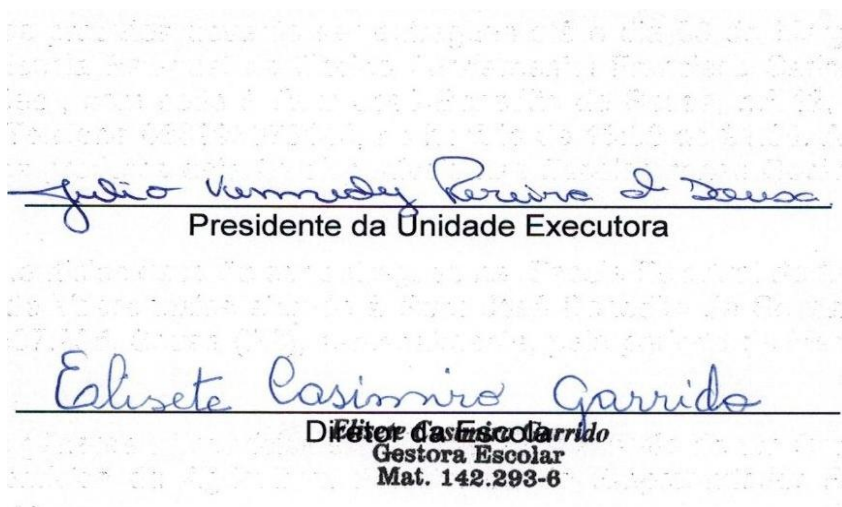 Julio Kennedy Pereira d Sousa
Presidente da Unidade Executora
Elisete Casimiro Garrido
Diretor da Escola
Elisete Casimiro Garrido
Gestora Escolar
Mat. 142.293-6